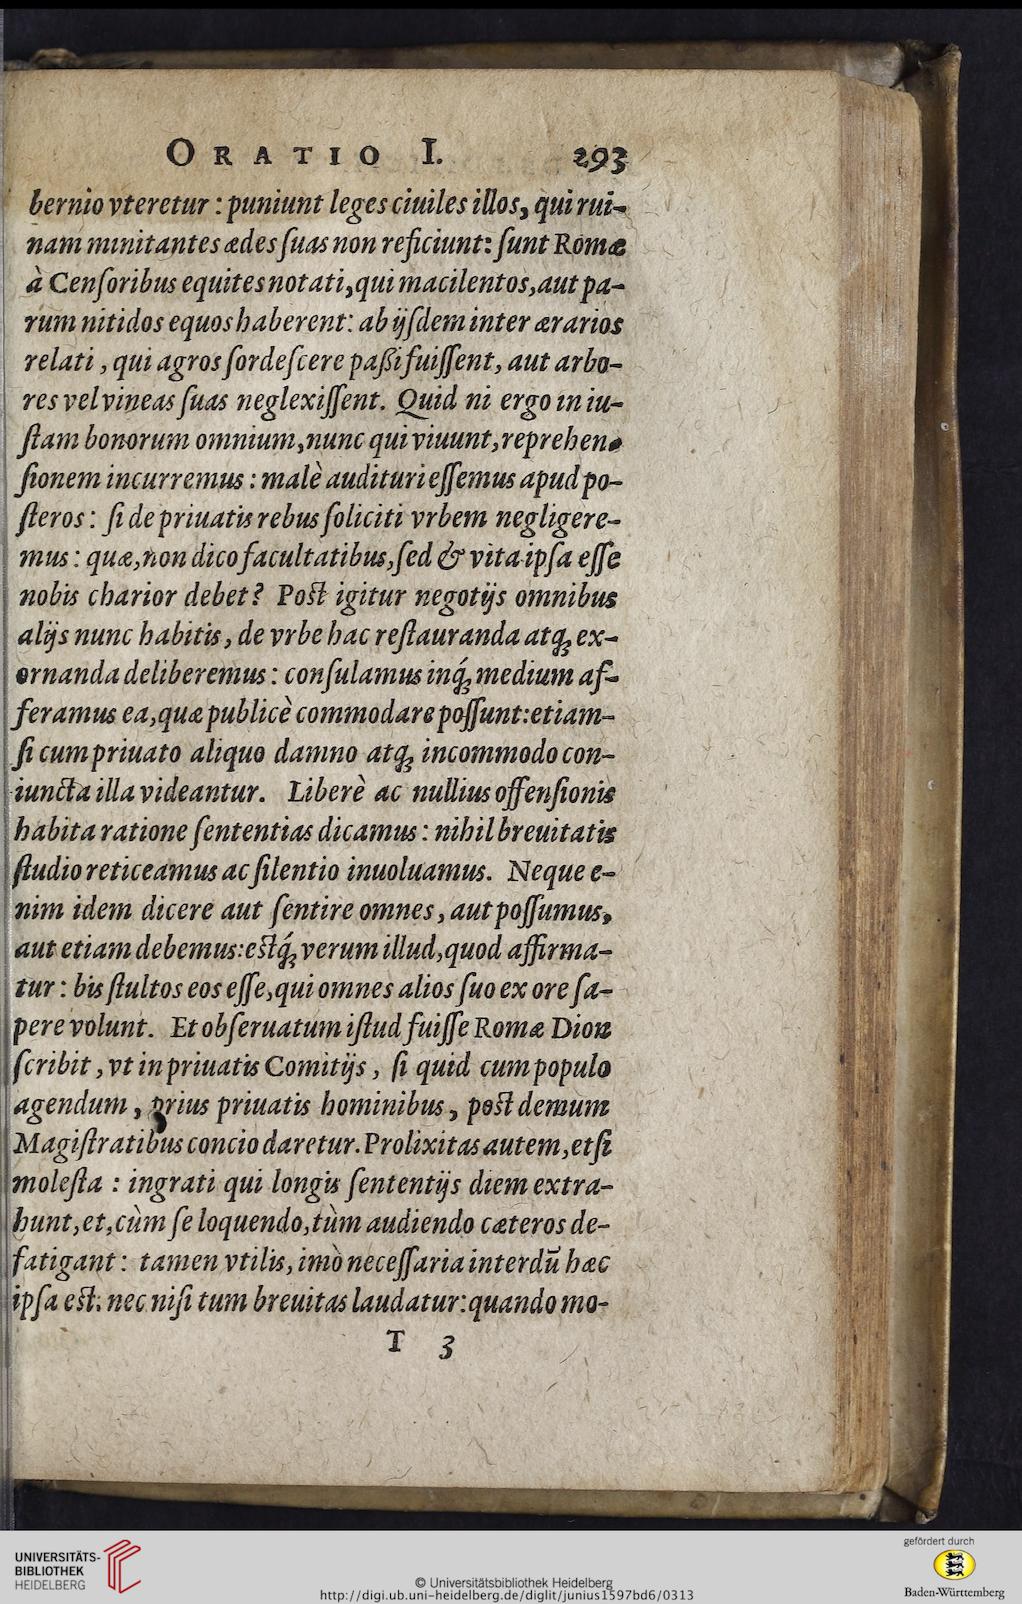 ORATIO I. 293
bernio vteretur : puniunt leges ciuiles illos, qui rui-
nam minitantes ædes ſuas non reficiunt: ſunt Romæ
à Cenſoribus equites notati, qui macilentos, aut pa-
rum nitidos equos haberent: ab ijſdem inter ærarios
relati, qui agros ſordeſcere paßi fuiſſent, aut arbo-
res vel vineas ſuas neglexiſſent. Quid ni ergo in iu-
ſtam bonorum omnium, nunc qui viuunt, reprehen-
ſionem incurremus : malè audituri eſſemus apud po-
ſteros : ſi de priuatis rebus ſoliciti vrbem negligere-
mus : quæ, non dico facultatibus, ſed & vita ipſa eſſe
nobis charior debet? Post igitur negotijs omnibus
alijs nunc habitis, de vrbe hac reſtauranda atq; ex-
ornanda deliberemus : conſulamus inq́; medium af-
feramus ea, quæ publicè commodare poſſunt: etiam-
ſi cum priuato aliquo damno atq; incommodo con-
iuncta illa videantur. Liberè ac nullius offenſionis
habita ratione ſententias dicamus : nihil breuitatis
ſtudio reticeamus ac ſilentio inuoluamus. Neque e-
nim idem dicere aut ſentire omnes, aut poſſumus,
aut etiam debemus: estq́; verum illud, quod affirma-
tur : bis ſtultos eos eſſe, qui omnes alios ſuo ex ore ſa-
pere volunt. Et obſeruatum iſtud fuiſſe Romæ Dion
ſcribit, vt in priuatis Comitijs, ſi quid cum populo
agendum, prius priuatis hominibus, post demum
Magiſtratibus concio daretur. Prolixitas autem, etſi
moleſta : ingrati qui longis ſententijs diem extra-
hunt, et, cùm ſe loquendo, tùm audiendo cæteros de-
fatigant : tamen vtilis, imò neceſſaria interdū hæc
ipſa est: nec niſi tum breuitas laudatur: quando mo-
T 3
UNIVERSITÄTS-
BIBLIOTHEK
HEIDELBERG
© Universitätsbibliothek Heidelberg
http://digi.ub.uni-heidelberg.de/diglit/junius1597bd6/0313
gefördert durch
Baden-Württemberg